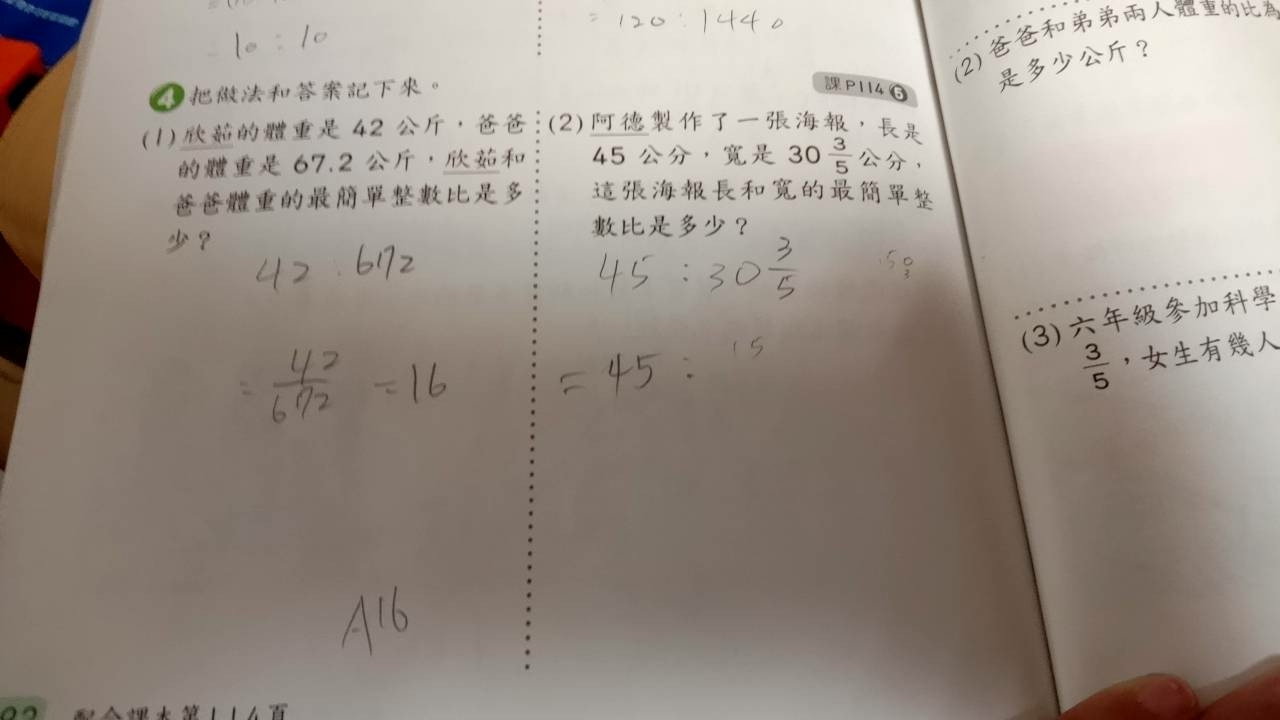 10 : 10
= 120 : 1440
4 把做法和答案記下來。
課P114 6
(1) 欣茹的體重是 42 公斤，爸爸
的體重是 67.2 公斤，欣茹和
爸爸體重的最簡單整數比是多
少？
42 : 672
= 42/672 = 16
A16
(2) 阿德製作了一張海報，長是
45 公分，寬是 30 3/5 公分，
這張海報長和寬的最簡單整
數比是多少？
45 : 30 3/5
= 45 :
15
(2) 爸爸和弟弟兩人體重的比為
是多少公斤？
(3) 六年級參加科學
3/5，女生有幾人
配合課本第114頁